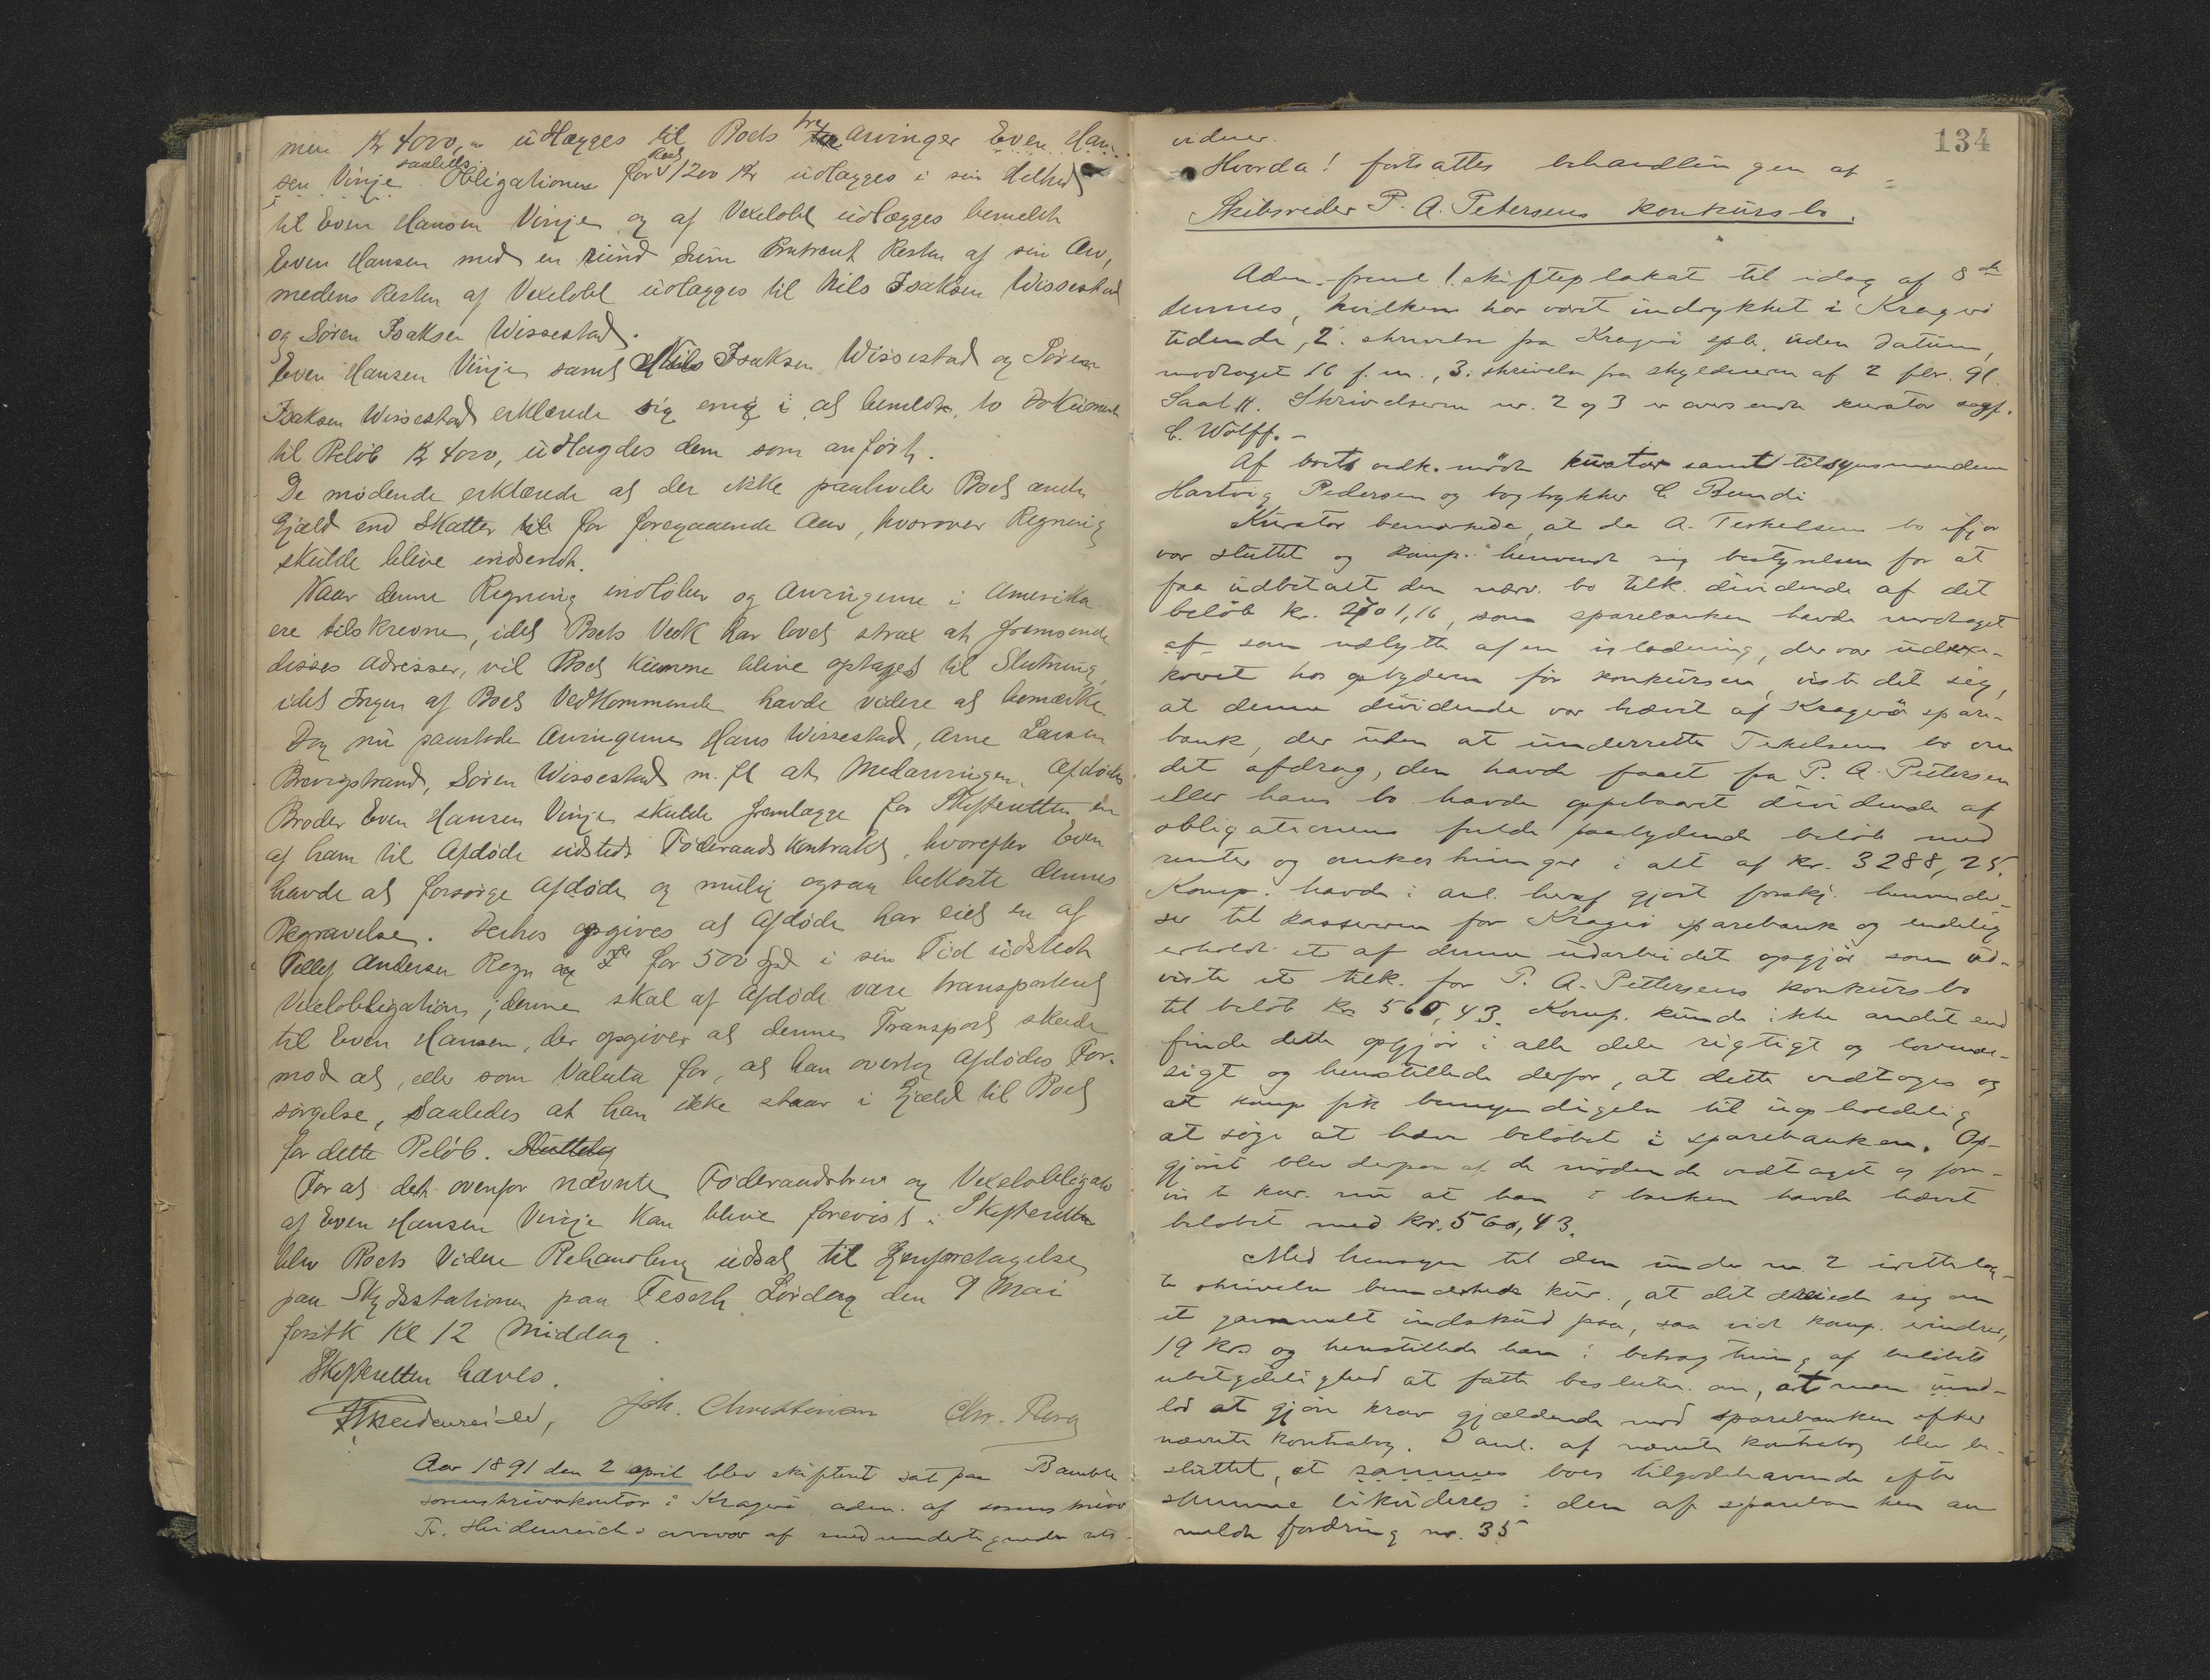 men Kr 4000,- udlægges til Boets tre Arvinger Even Han-
sen Vinje saaledes: Obligationen for 1200 Kr udlægges i sin Helhed
til Even Hansen Vinje og af Vexelobl udlægges bemeldte
Even Hansen med en rund Sum Resten af sin Arv,
medens Resten af Vexelobl udlægges til Nils Isaksen Wissestad
og Søren Isaksen Wissestad.
Even Hansen Vinje samt Nils Isaksen Wissestad og Søren
Isaksen Wissestad erklærede sig enig i at bemeldte to Dokument
til Beløb Kr 4000, udlagdes dem som anført.
De mødende erklærede at der ikke paahviler Boet anden
Gjæld end Skatter for foregaaende Aar, hvorover Regning
skulde blive indsendt.
Naar denne Regning indløber og Arvingerne i Amerika
ere tilskrevne, idet Boets Vedk har lovet strax at fremsende
disses Adresser, vil Boet kunne blive optaget til Slutning,
idet Ingen af Boets Vedkommende havde videre at bemærke.
Dog nu paastode Arvingerne Hans Wissestad, Arne Larsen
Brevigstrand, Søren Wissestad m. fl at Medarvingen, Afdødes
Broder Even Hansen Vinje skulde fremlægge for Skifteretten en
af ham til Afdøde udstedt Føderaadskontrakt, hvorefter Even
havde at forsørge Afdøde og mulig ogsaa bekoste dennes
Begravelse. Derhos opgives at Afdøde har eiet en af
Tellef Andersen Rogn for 500 Spd i sin Tid udstedt
Vexelobligation; denne skal af Afdøde være transporteret
til Even Hansen, der opgiver at denne Transport skede
mod at, eller som Valuta for, at han overtog Afdødes For-
sørgelse, saaledes at han ikke staar i Gjæld til Boet
for dette Beløb. Sluttelig
For at det ovenfor nævnte Føderaadsbrev og Vexelobligation
af Even Hansen Vinje kan blive forevist i Skifteretten
blev Boets videre Behandling udsat til Gjenforetagelse
paa Skydsstationen paa Fesseth Lørdag den 9 Mai
førstk Kl 12 Middag.
Skifteretten hævet.
Fr Heidenreich, Joh. Christensen Chr. Berg
Aar 1891 den 2 april blev skifteret sat paa Bamble
sorenskriverkontor i Kragerø adm. af sorenskriver
Fr. Heidenreich i nærvær af medundertegnede rets-
134
vidner.
Hvorda! fortsattes behandlingen af
Skibsreder P. A. Petersens konkursbo.
Adm. freml. 1. skifteplakat til idag af 8de
dennes, hvilken har været indrykket i Kragerø
tidende, 2. skrivelse fra Kragerø spb. uden datum,
modtaget 16 f. m., 3. skrivelse fra skyldneren af 2 febr. 91.
Saal. Skrivelserne nr. 2 og 3 er oversendt kurator sagf.
C. Wolff. -
Af boets vedk. mødte kurator samt tilsynsmændene
Hartvig Pedersen og bogtrykker C. Bundi
Kurator bemærkede, at da A. Terkelsens bo ifjor
var sluttet og komp. henvendte sig bestyrelsen for at
faa udbetalt den nærv. bo tilk. dividende af det
beløb kr. 2701,16, som sparebanken havde modtaget
af som udbytte af en isladning, der var udexe-
kveret hos opbyderen før konkursen, viste det sig,
at denne dividende var hævet af Kragerø spare-
bank, der uden at underrette Terkelsens bo om
det afdrag, den havde faaet fra P. A. Pettersen
eller hans bo havde oppebaaret dividende af
obligationens fulde paalydende beløb med
renter og omkostninger i alt af kr. 3288,25.
Komp. havde i anl. heraf gjort forskj. henvendel-
ser til kassereren for Kragerø sparebank og endelig
erholdt et af denne udarbeidet opgjør som ud-
viste et tilk. for P. A. Pettersens konkursbo
til beløb Kr. 560,43. Komp. kunde ikke andet end
finde dette opgjør i alle dele rigtigt og lovmæs-
sigt og henstillede derfor, at dette vedtages og
at komp fik bemyndigelse til uopholdelig
at søge at hæve beløbet i sparebanken. Op-
gjøret blev derpaa af de mødende vedtaget og for-
viste kur. nu at han i banken havde hævet
beløbet med kr. 560,43.
Med hensyn til den under nr. 2 irettelag-
te skrivelse bemærkede kur., at det dreiede sig om
et gammelt indskud paa, saa vidt komp. erindrer,
19 Kr. og henstillede han i betragtning af beløbets
ubetydelighed at fatte beslutn. om, at man und-
lod at gjøre krav gjældende mod sparebanken efter
nævnte kontrabog. I anl. af nævnte kontrabog blev be-
sluttet, at sammes boes tilgodehavende efter
samme likvideres i den af sparebanken an-
meldte fordring nr. 35